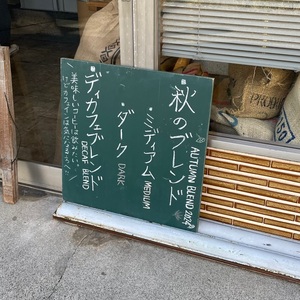 秋のブレンド
AUTUMN BLEND 2024
・ミディアム MEDIUM
・ダーク DARK
・ディカフェブレンド
DECAF BLEND
美味しいコーヒーは飲みたい。
けどカフェインは気になる方へ
PRODU